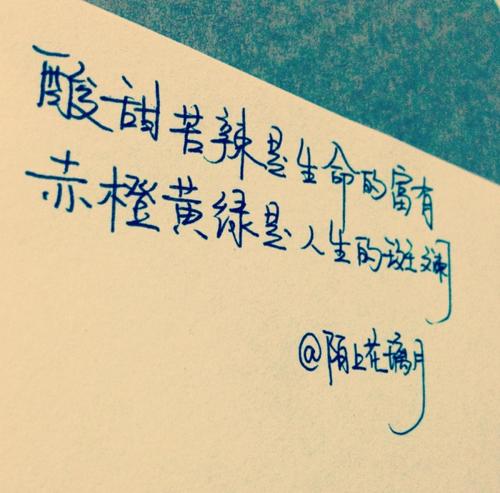 酸甜苦辣是生命的富有
赤橙黄绿是人生的斑斓
@陌上花璃月